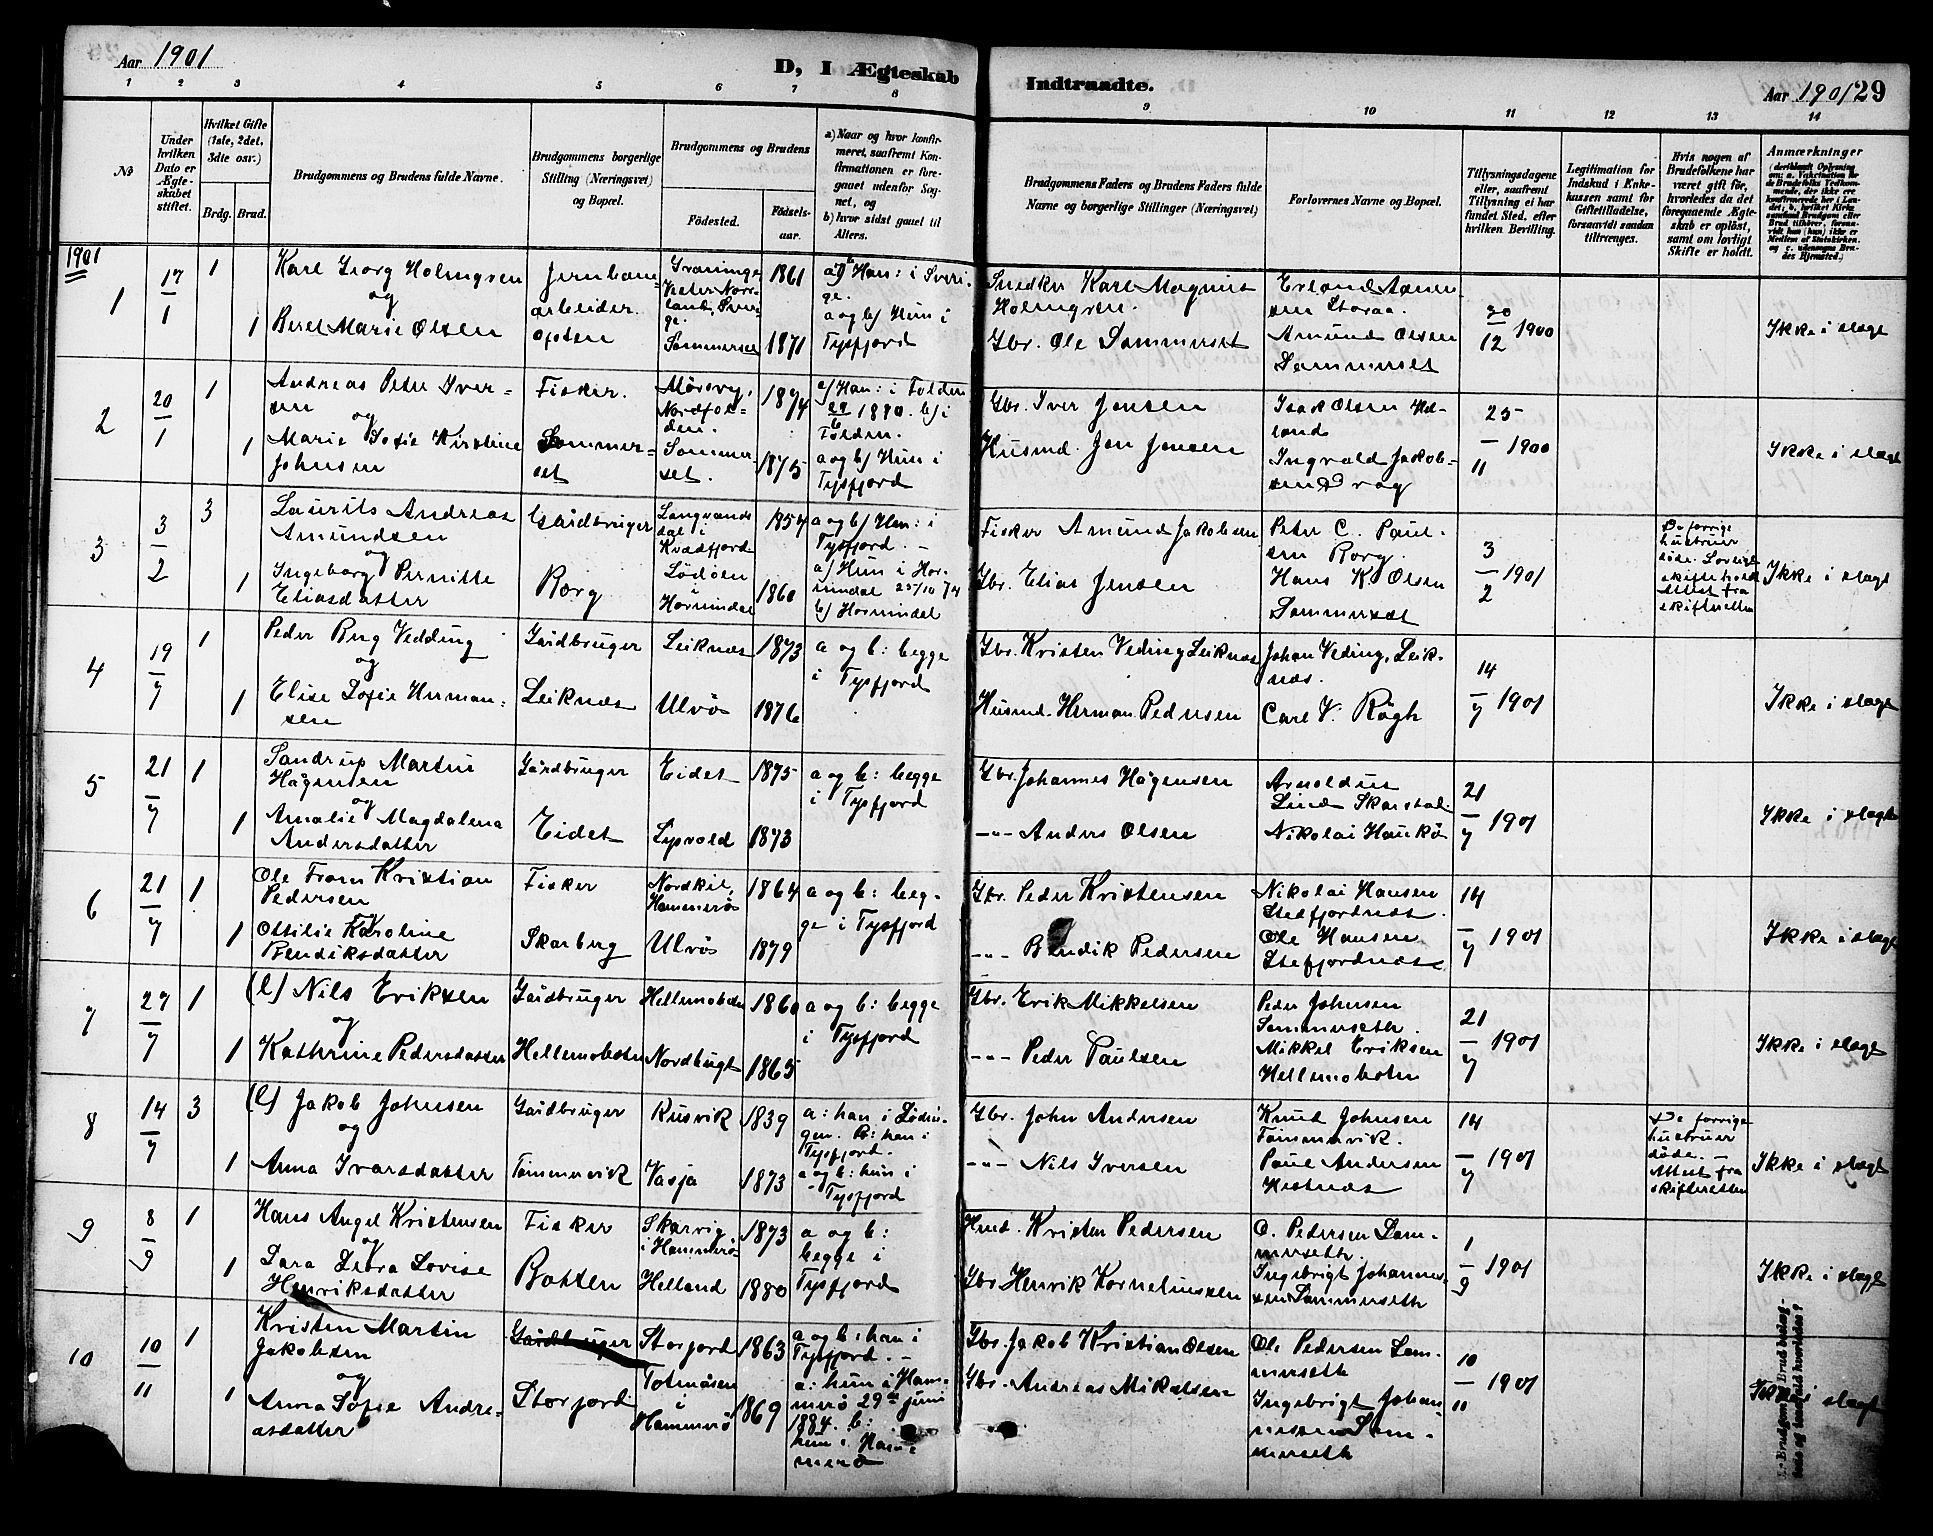 Aar 1901
D, I Ægteskab
Indtraadte.
Aar 1901 29
1 2 3 4 5 6 7 8 9 10 11 12 13 14
No
Under hvilken Dato er Ægteskabet stiftet.
Hvilket Gifte (1ste, 2det, 3die osv.)
Brdg. Brud.
Brudgommens og Brudens fulde Navne.
Brudgommens borgerlige Stilling (Næringsvei) og Bopæl.
Brudgommens og Brudens
Födested.
Födselsaar.
a) Naar og hvor konfirmeret, saafremt Konfirmationen er foregaaet udenfor Sognet, og
b) hvor sidst gaaet til Alters.
Brudgommens Faders og Brudens Faders fulde Navne og borgerlige Stillinger (Næringsvei)
Forlovernes Navne og Bopæl.
Tillysningsdagene eller, saafremt Tillysning ei har fundet Sted, efter hvilken Bevilling.
Legitimation for Indskud i Enkekassen samt for Giftetilladelse, forsaavidt saadan tiltrænges.
Hvis nogen af Brudefolkene har været gift för, hvorledes da det foregaaende Ægteskab er oplöst, samt om lovligt Skifte er holdt.
Anmærkninger
1901
1
17/1
1
Karl Georg Holmgren
og
1
Beret Marie Olsen
Jernbanearbeider.
Ofoten
Graninge, Vester Norrland, Sverige.
1861
Sommerset
1871
a) Han: i Sverige.
a og b/ Hun i Tysfjord
Snedker Karl Magnus Holmgren.
Gbr. Ole Sommerset
Erland
Storaa.
Amund Olsen Sommerset
30/12 1900
Ikke i slægt
2
20/1
1
Andreas Peter Iversen
og
1
Marie Sofie Kirstine Johnsen
Fisker.
Sommerset
Mörsvig, Nordfolden.
1874
Sommerset.
1875
a/ Han: i Folden 1890. b/ i Folden.
a og b/ Hun i Tysfjord
Gbr. Iver Jensen
Husmd. Jon Jensen
Isak Olsen
Ingvald Jakobsen Drag
25/11 1900
Ikke i slægt
3
3/2
3
Laurits Andreas Amundsen
og
1
Ingeborg Pernille Eliasdatter
Gårdbruger
Korg
Langvandsdal i Kvædfjord
1854
Lödöen Hornindal
1860
a og b/ Han: i Tysfjord. –
a/ Hun i Hornindal 25/10 74
b/ Hornindal
Fisker Amund Jakobsen
Gbr. Elias Jensen
Peter C. Paulsen Korg.
Hans K. Olsen Sommerset
3/2 1901
De forrige hustruer döde. Lovligt skifte holdt Attest fra skifteretten
Ikke i slægt
4
19/7
1
Peder Brug Vedding
og
1
Elise Sofie Hermansen
Gårdbruger
Leiknæs
Leiknæs
1873
Ulvö
1876
a og b: begge i Tysfjord
Gbr. Kristen Veding Leiknæs
Husmd. Herman Pedersen
Johan Veding, Leiknæs.
Carl V. Rögh
14/7 1901
Ikke i slægt
5
21/7
1
Sandrup Martin Hågensen
og
1
Amalie Magdalena Andersdatter
Gårdbruger
Eidet
Eidet
1875
Sypvold
1873
a og b: begge i Tysfjord
Gbr. Johannes Hågensen
–"– Anders Olsen
Arnoldus Lind Skarstad.
Nikolai Haukö
21/7 1901
Ikke i slægt
6
21/7
1
Ole From Kristian Pedersen
og
1
Ottilie Karoline Bendiksdatter
Fisker
Skarberg
Nordkil, Hammerö
1864
Ulvö
1879
a og b: begge i Tysfjord
Gbr. Peder Kristensen
–"– Bendik Pedersen
Nikolai Hansen Stefjordnæs.
Ole Hansen Stefjordnæs
14/7 1901
Ikke i slægt
7
27/7
1
(l) Nils Eriksen
og
1
Kathrine Pedersdatter
Gårdbruger
Hellemobotn
Hellemobotn
1860
Nordbugt
1865
a og b: begge i Tysfjord
Gbr. Erik Mikkelsen
–"– Peder Paulsen
Peder Johnsen Sommerseth.
Mikkel Eriksen Hellemobotn
21/7 1901
Ikke i slægt
8
14/7
3
(l) Jakob Johnsen
og
1
Anna Ivarsdatter
Gårdbruger
Tömmervik
Rusvik
1839
Vasja
1873
a: han i Lödingen. b: han i Tysfjord.
a og b: hun i Tysfjord
Gbr. John Andersen
–"– Nils Iversen
Knut Johnsen Tömmervik.
Paul Andersen Hestnæs
14/7 1901
De forrige hustruer döde. – Attest fra skifteretten
Ikke i slægt
9
8/9
1
Hans Angel Kristensen
og
1
Sara Lovise Henriksdatter
Fisker
Botten
Skarvig i Hammerö
1873
Helland
1880
a og b: begge i Tysfjord
Hmd. Kristen Pedersen
Gbr Henrik Korneliussen
O. Pedersen Sommerseth.
Ingebrigt Johannessen Sommerseth
1/9 1901
Ikke i slægt
10
10/11
1
Kristen Martin Jakobsen
og
1
Anna Sofie Andreasdatter
Gårdbruger
Storfjord
Storfjord
1863
Totmåsen Hammerö
1869
a og b: han i Tysfjord. –
a: hun i Hammerö 29de juni 1884. b: hun i Hammerö
Gbr. Jakob Kristian Olsen
Gbr. Andreas Mikalsen
Ole Pedersen Sommerseth
Ingebrigt Johannessen Sommerseth
10/11 1901
Ikke i slægt